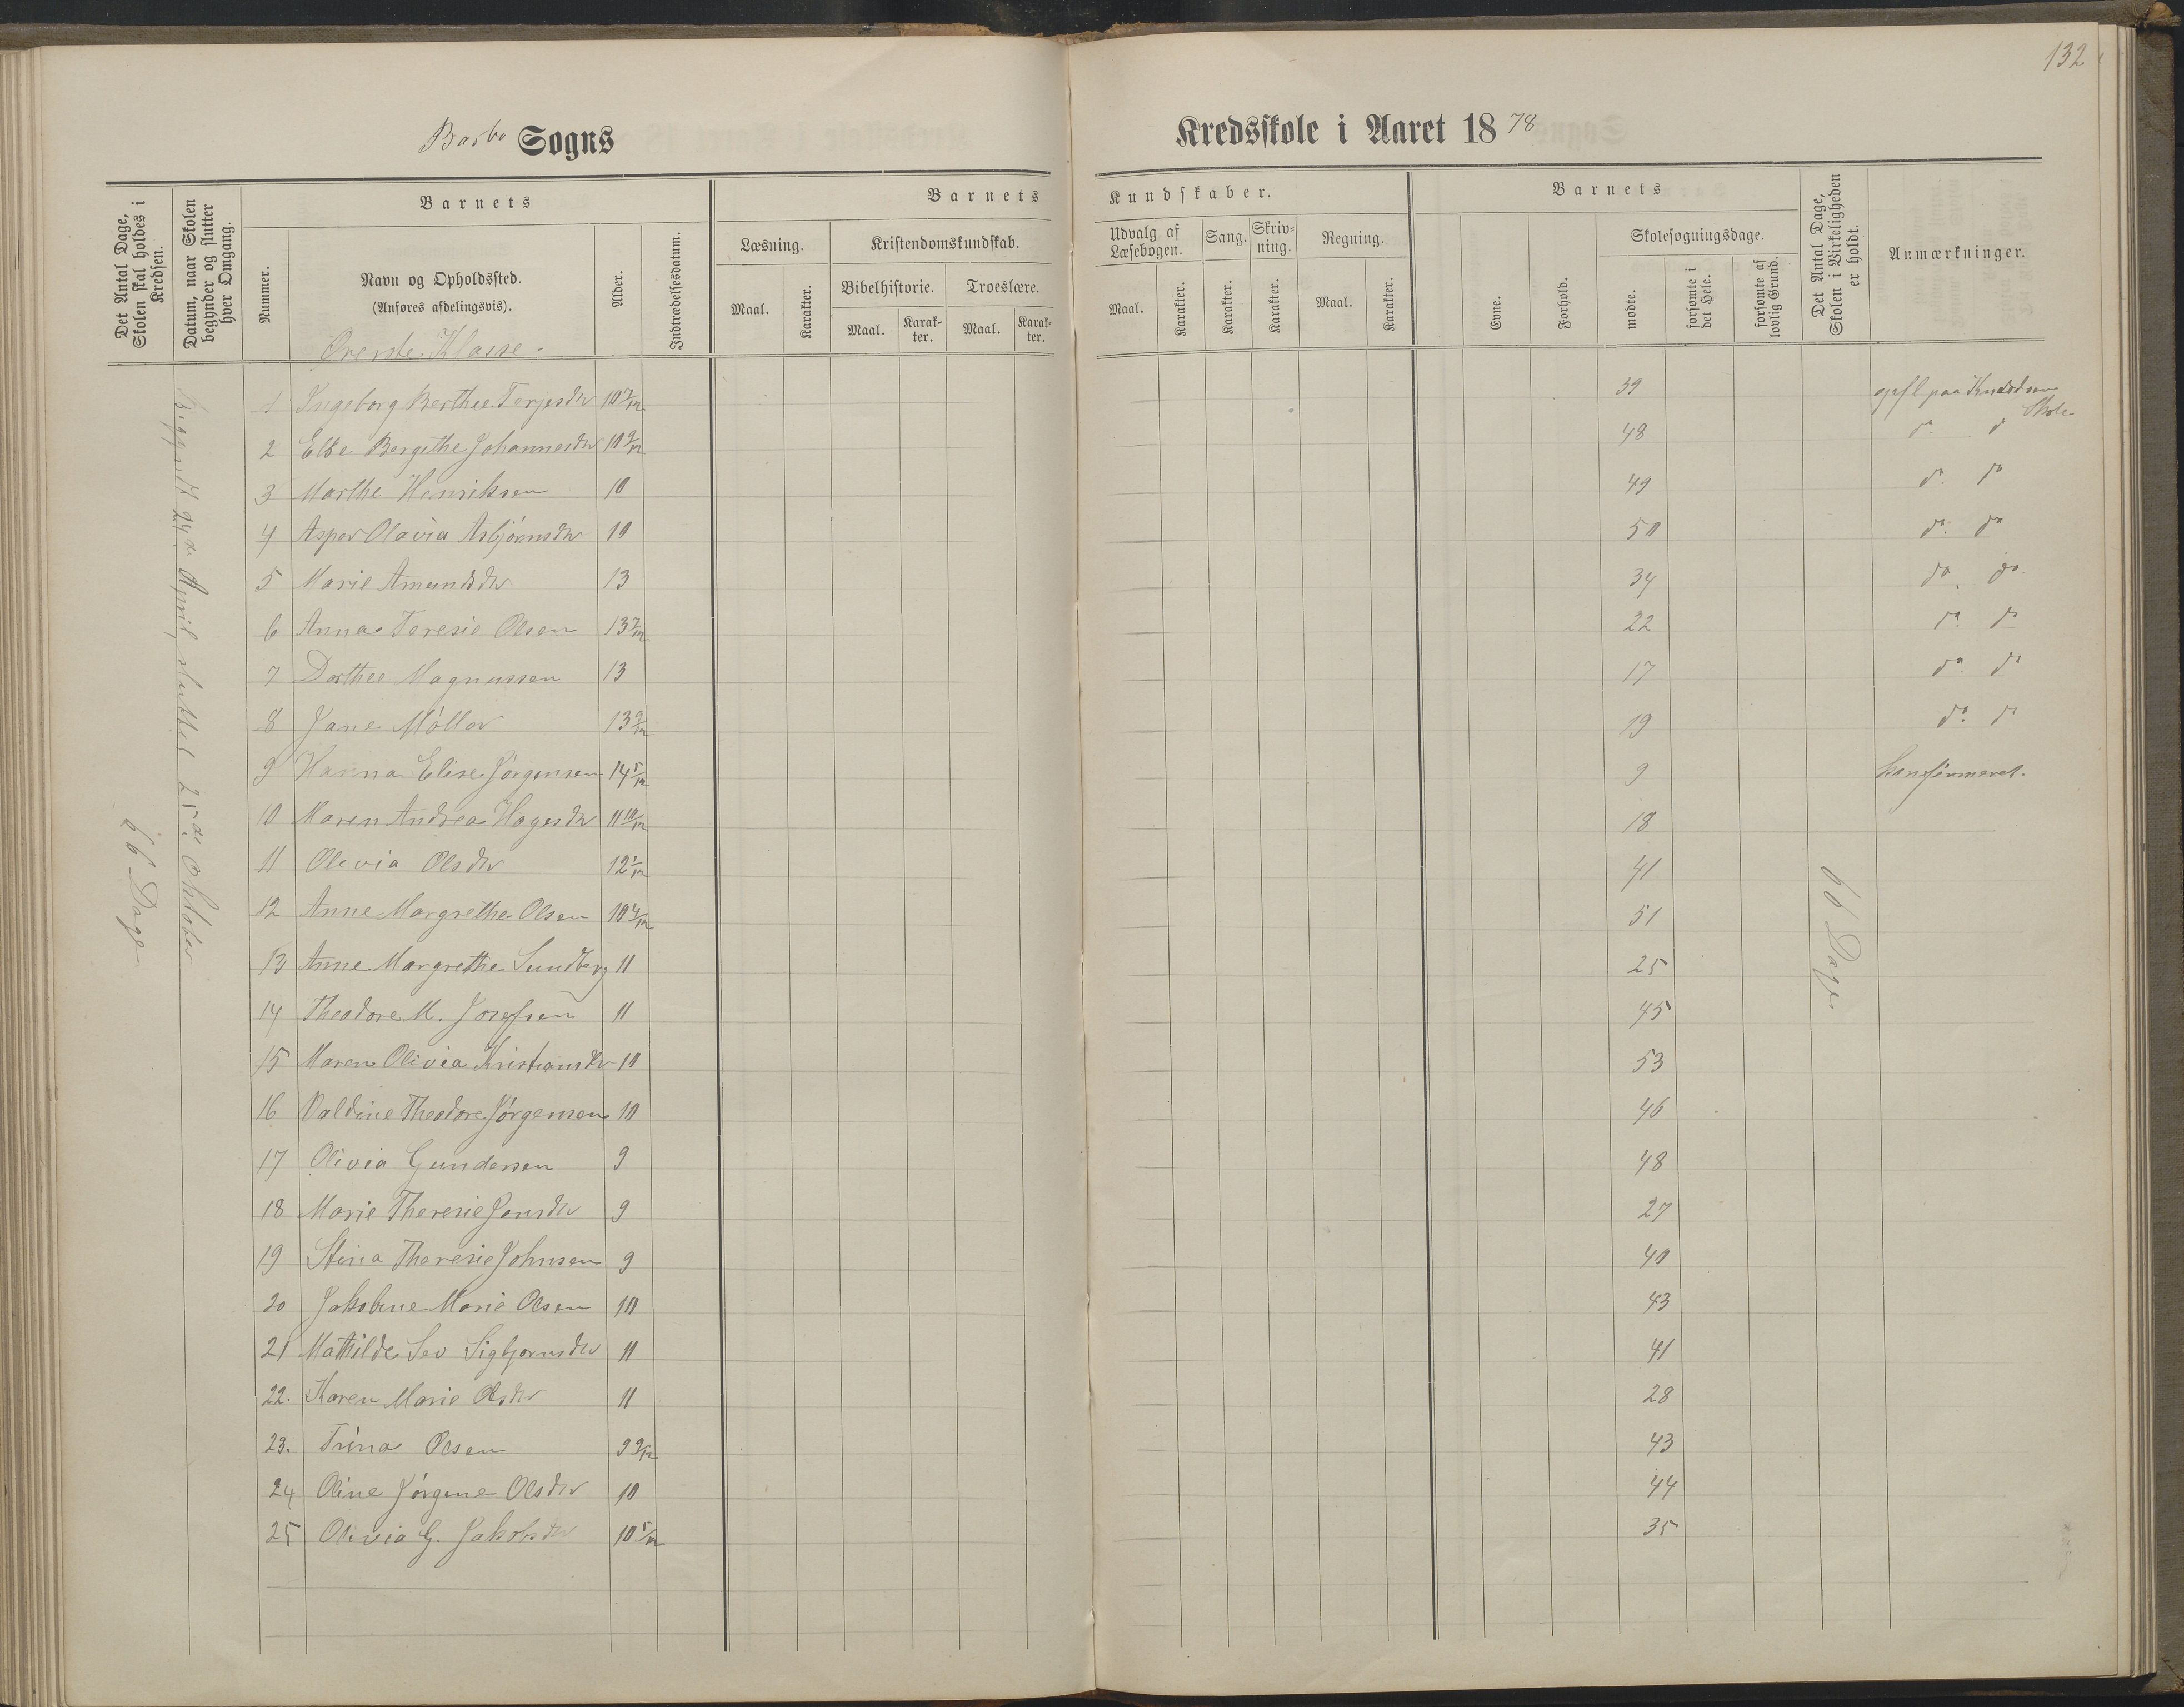 132
Barbo Sogns
Kredsskole i Aaret 1878
Det Antal Dage, Skolen skal holdes i Kredsen.
Datum, naar Skolen begynder og slutter hver Omgang.
Nummer.
Barnets
Navn og Opholdssted.
(Anføres afdelingsvis).
Alder.
Indtrædelsesdatum.
Barnets Kundskaber.
Læsning.
Maal.
Karakter.
Kristendomskundskab.
Bibelhistorie.
Maal.
Karakter.
Troeslære.
Maal.
Karakter.
Udvalg af Læsebogen.
Maal.
Karakter.
Sang.
Karakter.
Skrivning.
Karakter.
Regning.
Maal.
Karakter.
Barnets
Evne.
Forhold.
Skolesøgningsdage.
mødte.
forsømte i det Hele.
forsømte af lovlig Grund.
Det Antal Dage, Skolen i Virkeligheden er holdt.
Anmærkninger.
Øverste Klasse.
66 Dage
Begyndt 24de April, sluttet 25de Oktober
1 Ingeborg Berthee Terjesdtr 10 7/12 39 opfl paa Knudsens Skole
2 Else Bergithe Johannesdtr 10 9/12 48 do do
3 Marthe Henriksen 10 49 do do
4 Asper Olavia Asbjørnsdtr 10 50 do do
5 Marie Amundsdtr 13 34 do do
6 Anna Teresie Olsen 13 7/12 22 do do
7 Dorthee Magnussen 13 17 do do
8 Jane Møller 13 9/12 19 do do
9 Hanna Elise Jørgensen 14 5/12 9 konfirmeret.
10 Maren Andrea Hagesdtr 11 10/12 18
11 Olevia Olsdtr 12 1/12 41
12 Anne Margrethe Olsen 10 4/12 51
13 Anne Margrethe Sundberg 11 25
14 Theodore M. Josefsen 11 45
15 Maren Olivia Kristiansdtr 10 53
16 Valdine Theodore Jørgensen 10 46
17 Olivia Gundersen 9 48
18 Marie Theresie Jonsdtr 9 27
19 Stina Theresie Johnsen 9 40
20 Jakobine Marie Olsen 10 43
21 Mathilde Sev Sigbjørnsdtr 11 41
22. Karen Marie Olsdtr 11 28
23. Trina Olsen 9 9/12 43
24 Oline Jørgine Olsdtr 10 44
25 Olivia G. Jakobsdtr 10 5/12 35
66 Dage